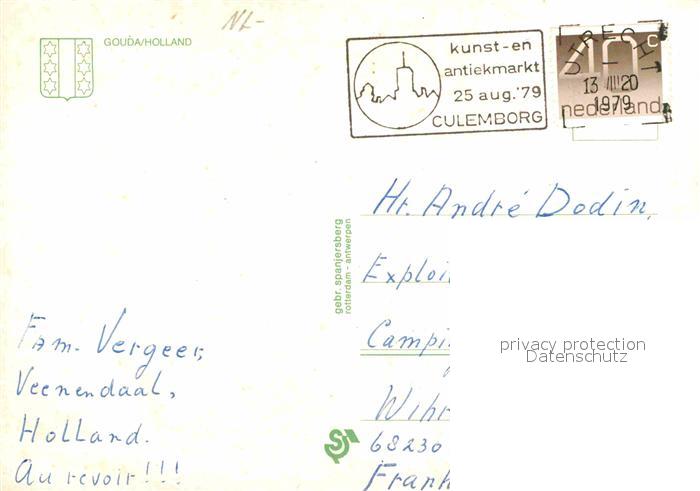 NL-
GOUDA/HOLLAND
kunst-en
antiekmarkt
25 aug.'79
CULEMBORG
UTRECHT
40c
13 VIII 20
1979
nederland
gebr. spanjersberg
rotterdam - antwerpen
Hr. André Dodin,
Exploi
Campi
Wihr
68230
Frank
privacy protection
Datenschutz
Fam. Vergeer,
Veenendaal,
Holland.
Au revoir!!!